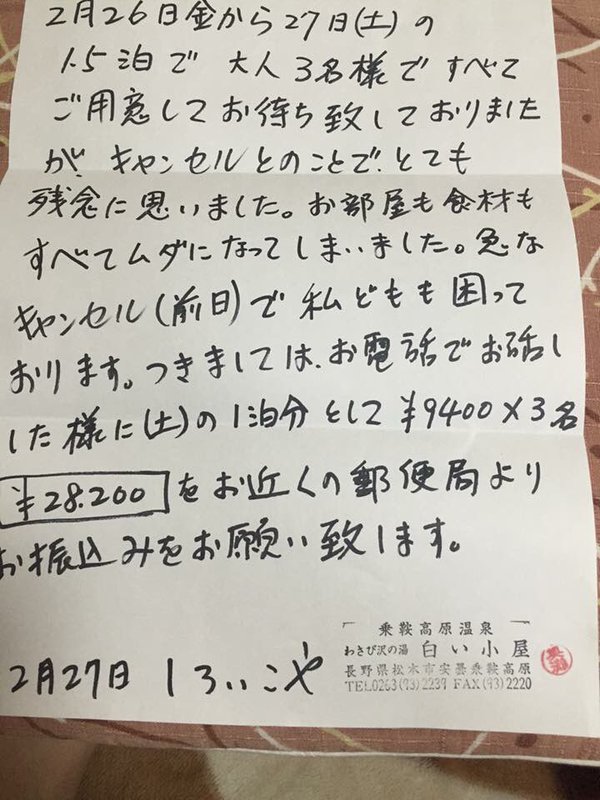 2月26日金から27日(土)の
1.5泊で 大人3名様ですべて
ご用意してお待ち致しておりました
が、キャンセルとのことで、とても
残念に思いました。お部屋も食材も
すべてムダになってしまいました。急な
キャンセル(前日)で私どもも困って
おります。つきましては、お電話でお話し
した様に(土)の1泊分として¥9400×3名
¥28.200をお近くの郵便局より
お振込みをお願い致します。
乗鞍高原温泉
わさび沢の湯 白い小屋
長野県松本市安曇乗鞍高原
TEL0263(93)2239 FAX(93)2220
2月27日 しろいこや